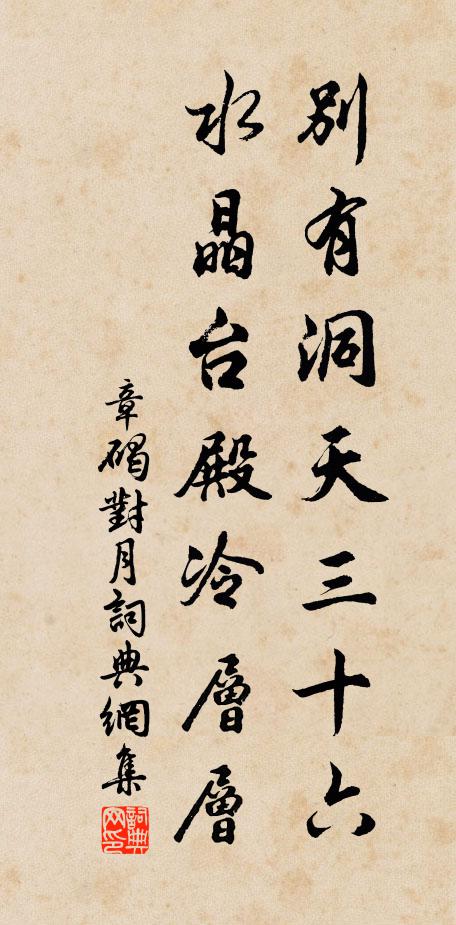 別有洞天三十六
水晶台殿冷層層
章碣對月詞典網集
詞典网印